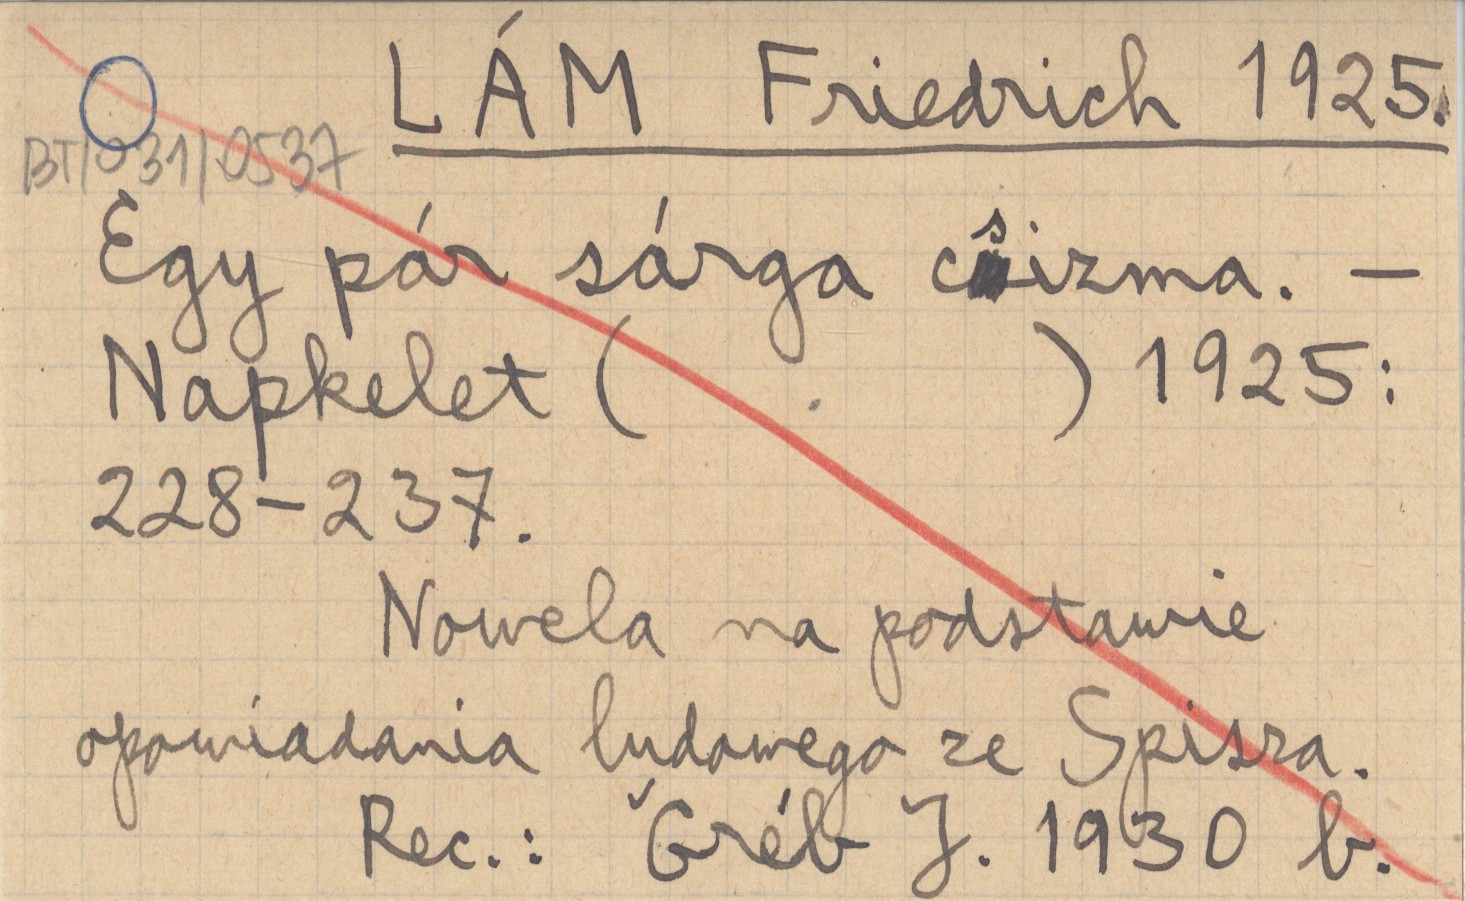 LÁM Friedrich 1925.
BT/031/0537
Egy pár sárga csizma. –
Napkelet ( ) 1925:
228–237.
Nowela na podstawie
opowiadania ludowego ze Spisza.
Rec.: Gréb J. 1930 b.